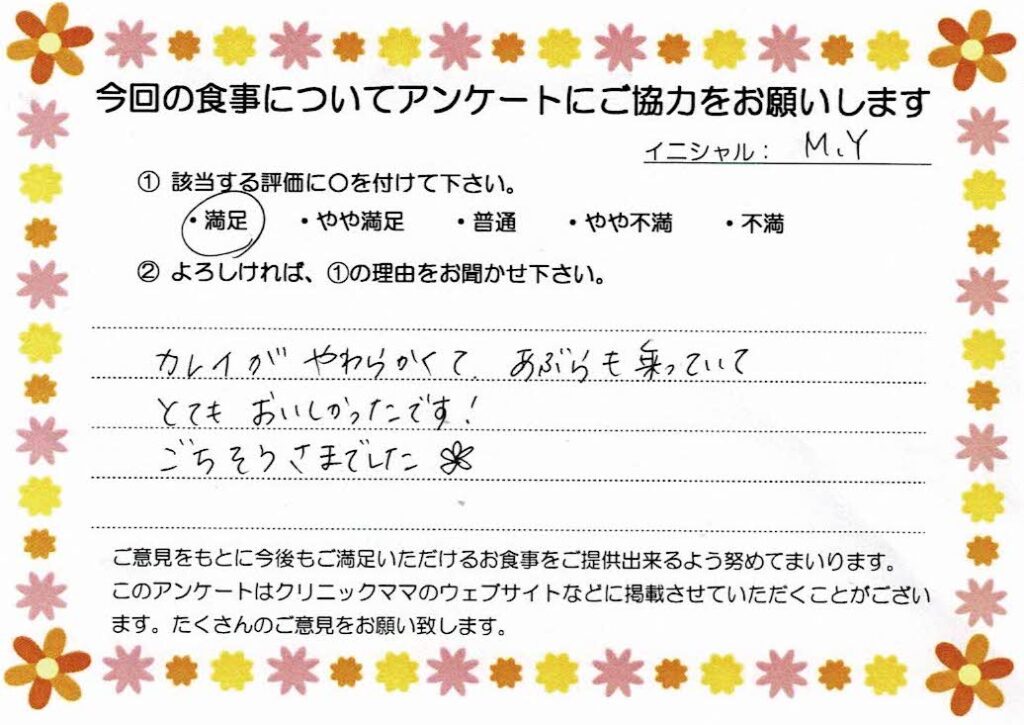 今回の食事についてアンケートにご協力をお願いします
イニシャル: M、Y
① 該当する評価に〇を付けて下さい。
・満足 ・やや満足 ・普通 ・やや不満 ・不満
② よろしければ、①の理由をお聞かせ下さい。
カレイが やわらかくて、あぶらも乗っていて
とても おいしかったです!
ごちそうさまでした
ご意見をもとに今後もご満足いただけるお食事をご提供出来るよう努めてまいります。
このアンケートはクリニックママのウェブサイトなどに掲載させていただくことがござい
ます。たくさんのご意見をお願い致します。